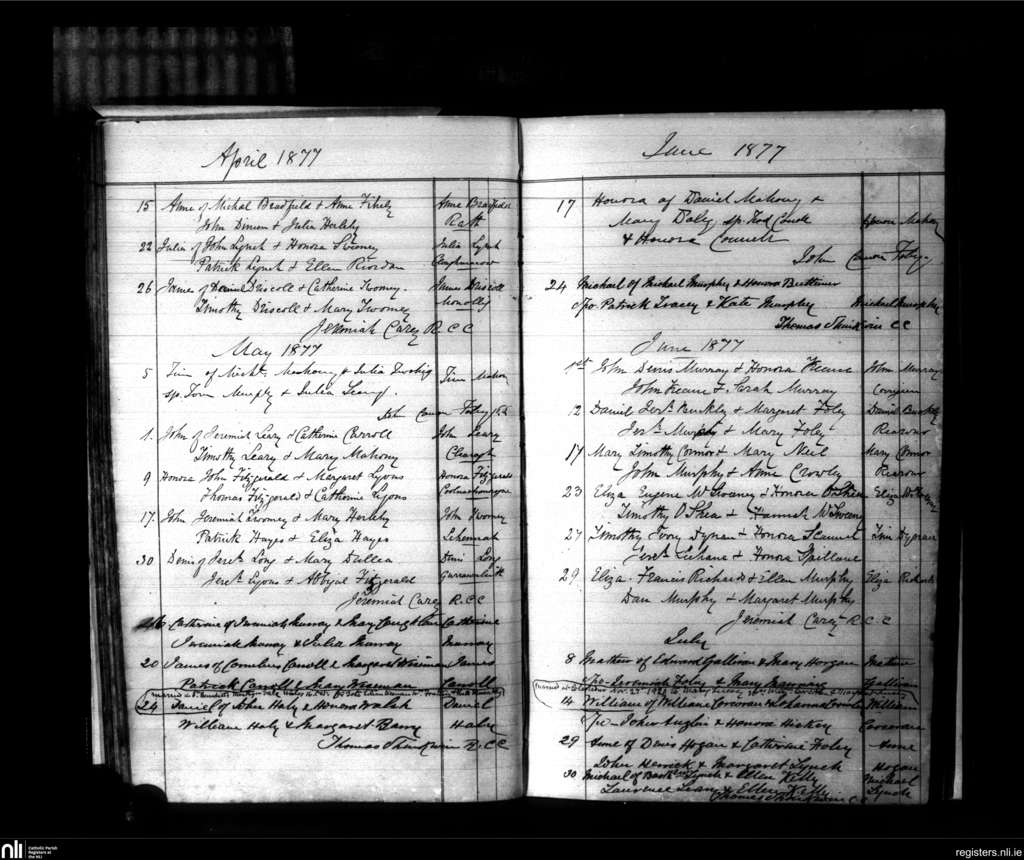 April 1877
15 Anne of Michal Bradfield & Anne Fihely Anne Bradfield
John Dineen & Julia Herlihy Rath
22 Julia of John Lynch & Honora Sweeney Julia Lynch
Patrick Lynch & Ellen Riordan
26 James of Daniel Driscoll & Catherine Twomey. James Driscoll
Timothy Driscoll & Mary Twomey
Jeremiah Carey R.C.C
May 1877
5 Tim of Mich. Mahony & Julia Tim Mahony
sp. Tom Murphy & Julia Leary.
John Canon Foley P.P.
1. John of Jeremiah Leary & Catherine Carroll John Leary
Timothy Leary & Mary Mahony Clearagh
9 Honora John Fitzgerald & Margaret Lyons Honora Fitzgerald
Thomas Fitzgerald & Catherine Lyons
17. John Jeremiah Twomey & Mary Herlihy John Twomey
Patrick Hayes & Eliza Hayes Lehennah
30 Denis of Jereh Long & Mary Dullea Denis Long
Jereh Lyons & Abbigal Fitzgerald
Jeremiah Carey R.C.C
Catherine of Jeremiah Murray & Mary Catherine
Jeremiah Murray & Julia Murray Murray
20 James of Cornelius Carroll & Margaret Wiseman James
Patrick Carroll & Mary Wiseman Carroll
24 Daniel of John Haly & Honora Walsh Daniel
William Haly & Margaret Barry Haly
Thomas R.C.C
June 1877
17 Honora of Daniel Mahony &
Mary Daly sp. Honora Mahony
& Honora Connell
John Canon Foley.
24 Michael of Michael Murphy & Honora Buttimer
Spo Patrick Tracey & Kate Murphy Michael Murphy
Thomas CC
June 1877
1st John Denis Murray & Honora Keane John Murray
John Keane & Sarah Murray
12 Daniel Jereh Buckley & Margaret Foley Daniel Buckley
Jereh Murphy & Mary Foley Rearour
17 Mary Timothy Connor & Mary Neil Mary Connor
John Murphy & Anne Crowley Rearour
23 Eliza Eugene McSweeney & Honora O'Shea Eliza McSweeney
Timothy O'Shea & Hannah McSweeney
27 Timothy & Honora Tim
Jereh Lehane & Honora Spillane
29 Eliza Francis Richards & Ellen Murphy Eliza Richards
Dan Murphy & Margaret Murphy
Jeremiah Carey R.C.C
July
8 Matthew of Edward Gallivan & Mary Horgan Matthew
Spo Jeremiah Foley & Mary Gallivan
14 William of William Corcoran & Johanna William
Spo John Anglin & Honora Hickey Corcoran
29 Anne of Denis Hogan & Catherine Foley Anne
John Herrick & Margaret Lynch Hogan
30 Michael of Lynch & Ellen Kelly Michael
Laurence Leary & Ellen Kelly Lynch
Thomas C.C
nli Catholic Parish
Registers at
the NLI
registers.nli.ie